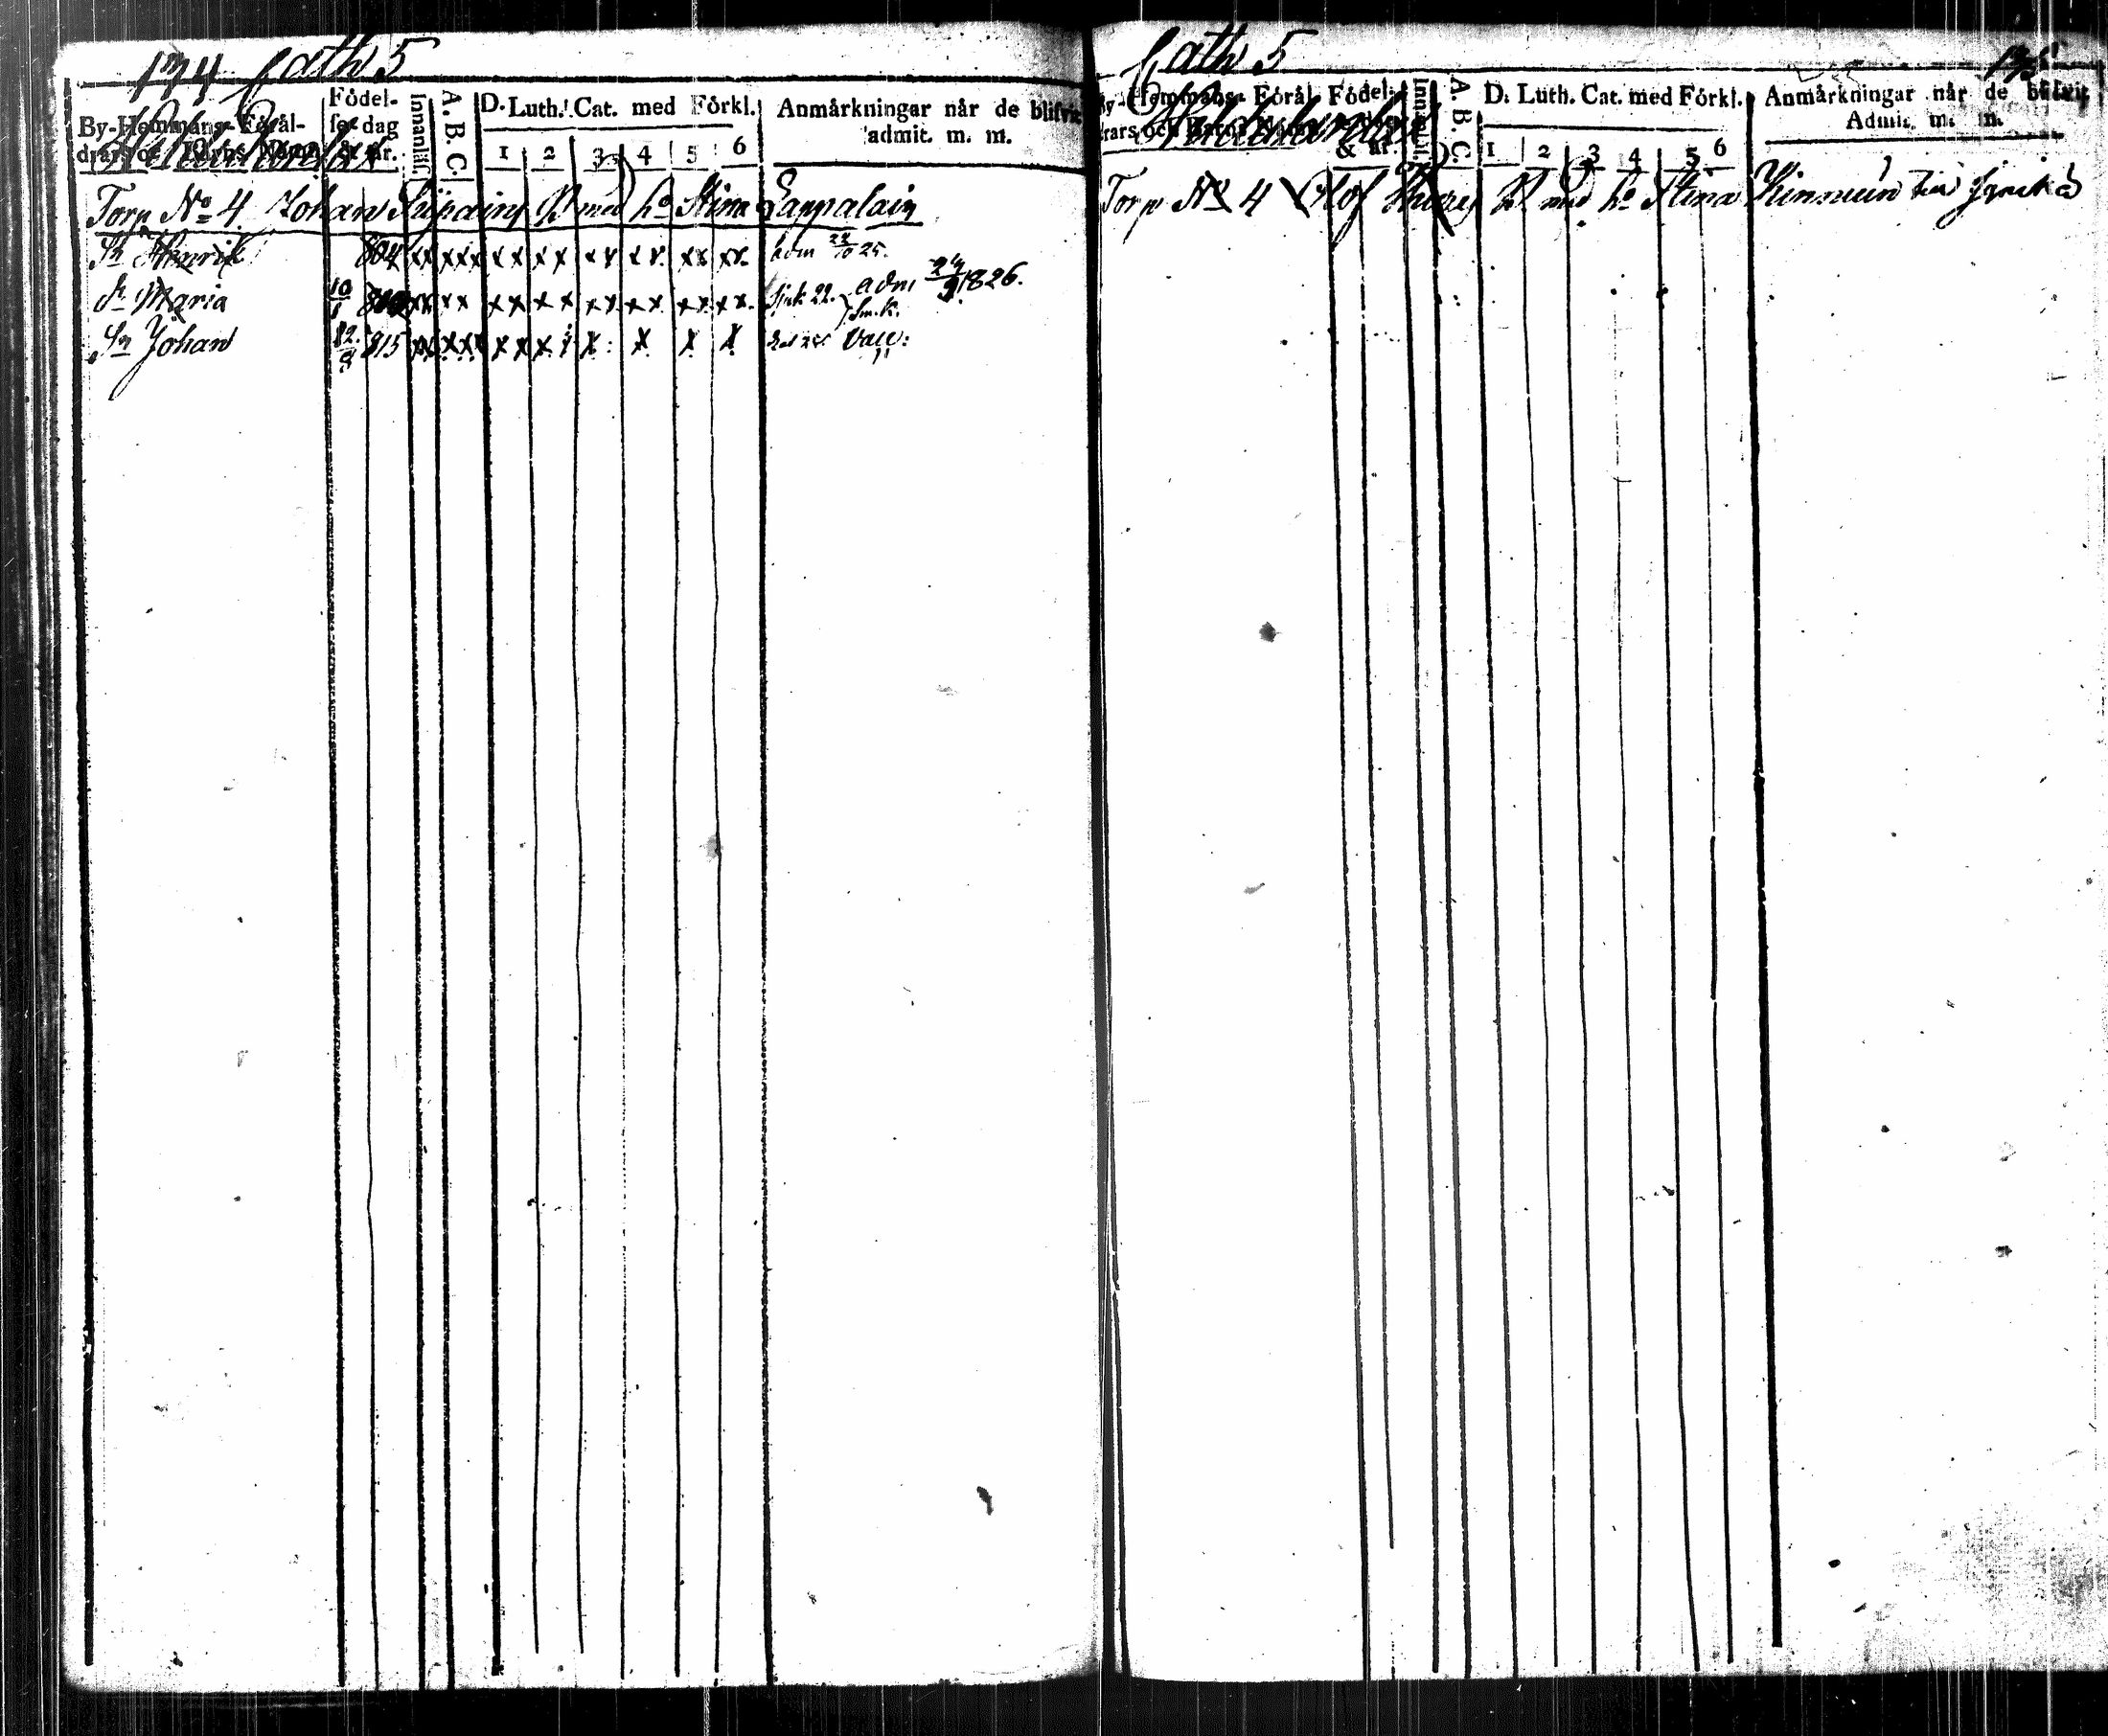 134 Cath 5
By-Hemmans- Förål-
drars och Barns Namn
Födel-
se- dag
& år.
Innanläsn.
A. B. C.
D. Luth. Cat. med Förkl.
1 2 3 4 5 6
Anmårkningar når de blifvit
admit. m. m.
Torp No 4 Johan med ho Stina Lappalain
Sn Henrik 804 xx xxx xx xx xx xx xx xx adm 25.
Dr Maria 10/1 xx xx xx xx xx xx xx xx. Sjuk 22. adm 24/9 1826.
Sn Johan 12/9 815 xx xxx xx xx x x x x Vacc:
Cath 5 135
By-Hemmans- Förål-
drars och Barns Namn
Födel-
& år.
A. B. C.
D. Luth. Cat. med Förkl.
1 2 3 4 5 6
Anmårkningar når de blifvit
Admit. m. m.
Torp No 4 Olof med ho Stina Kinnuin